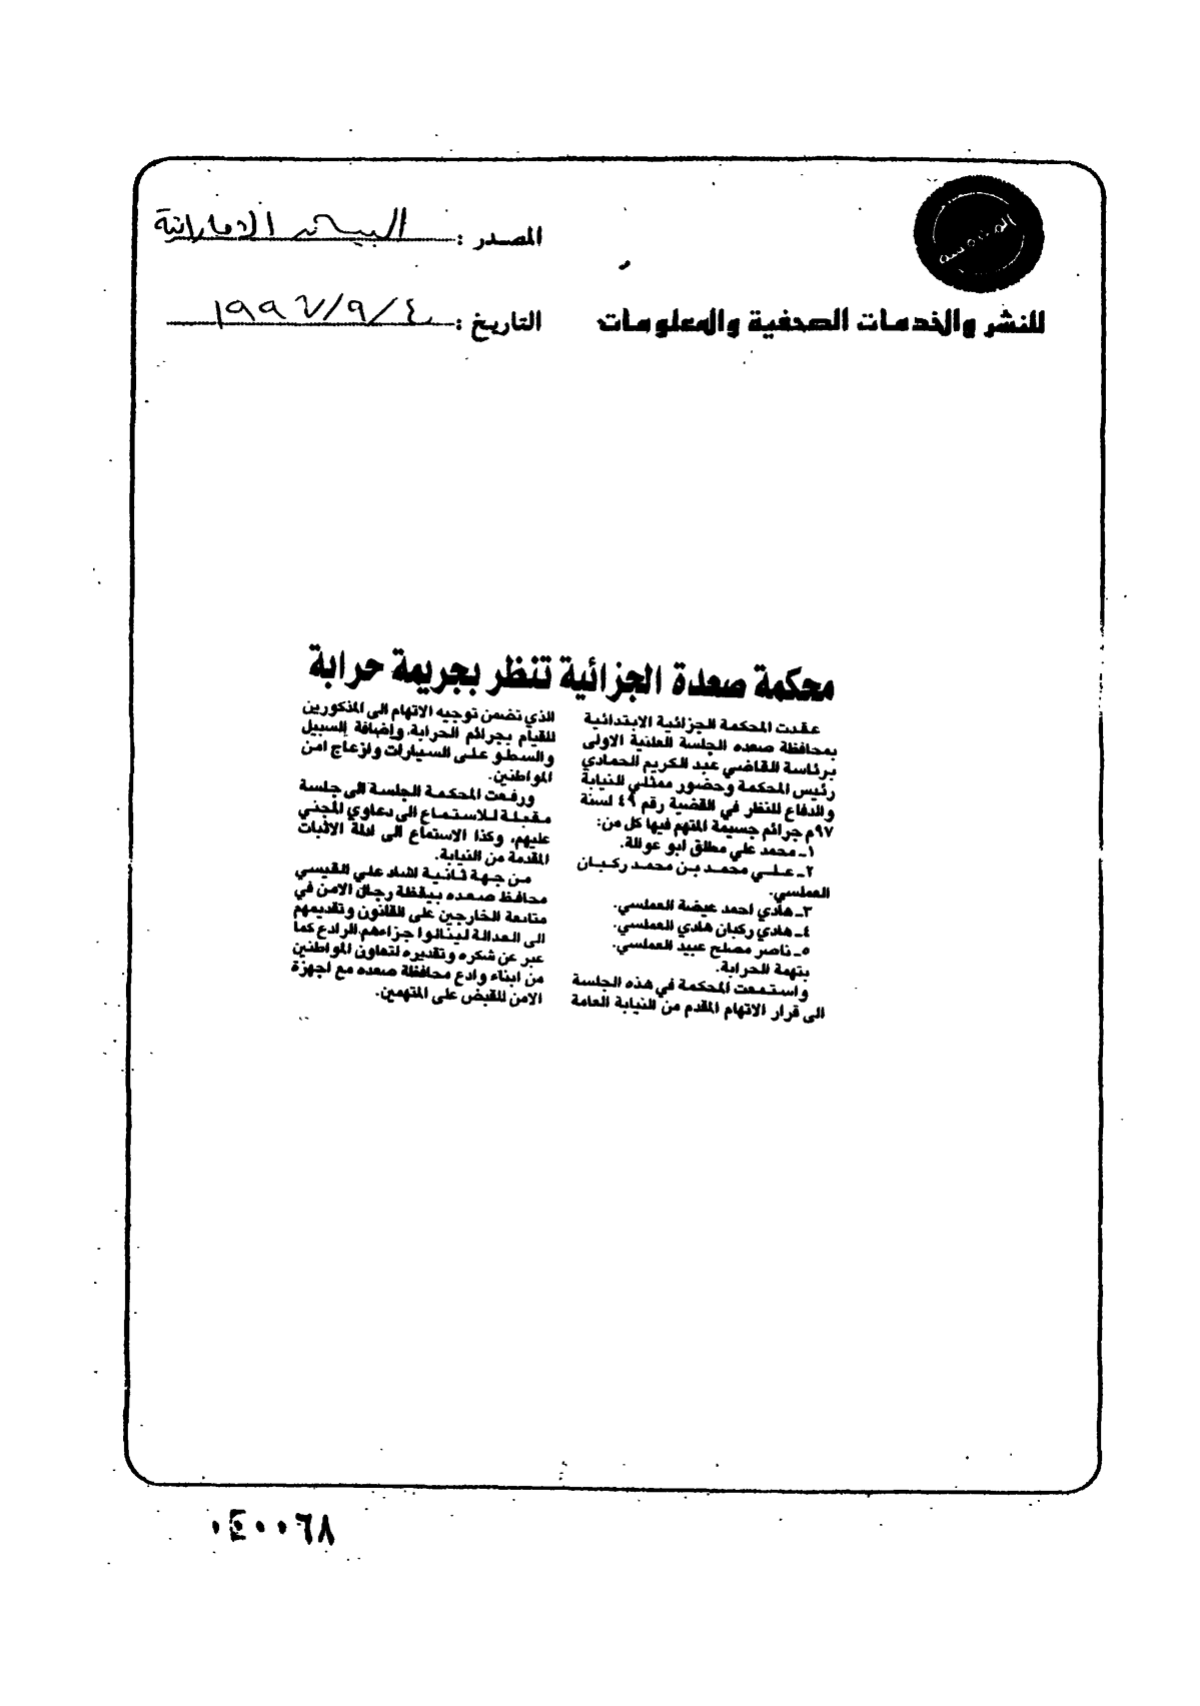 المصدر : البيان الاماراتية
للنشر والخدمات الصحفية والمعلومات
التاريخ : ٤ / ٩ / ١٩٩٧
محكمة صعدة الجزائية تنظر بجريمة حرابة
عقدت المحكمة الجزائية الابتدائية
بمحافظة صعده الجلسة العلنية الاولى
برئاسة القاضي عبد الكريم الحمادي
رئيس المحكمة وحضور ممثلي النيابة
والدفاع للنظر في القضية رقم ٤٩ لسنة
٩٧م جرائم جسيمة المتهم فيها كل من:
١ـ محمد علي مطلق ابو عوالة.
٢ـ علي محمد بن محمد ركبان
العملسي.
٣ـ هادي احمد عيضة العملسي.
٤ـ هادي ركبان هادي العملسي.
٥ـ ناصر مصلح عبيد العملسي.
بتهمة الحرابة.
واستمعت المحكمة في هذه الجلسة
الى قرار الاتهام المقدم من النيابة العامة
الذي تضمن توجيه الاتهام الى المذكورين
للقيام بجرائم الحرابة، وإضافة السبيل
والسطو على السيارات وازعاج امن
المواطنين.
ورفعت المحكمة الجلسة الى جلسة
مقبلة للاستماع الى دعاوي المجني
عليهم، وكذا الاستماع الى ادلة الاثبات
المقدمة من النيابة.
من جهة ثانية اشاد علي القيسي
محافظ صعده بيقظة رجال الامن في
متابعة الخارجين على القانون وتقديمهم
الى العدالة لينالوا جزاءهم الرادع كما
عبر عن شكره وتقديره لتعاون المواطنين
من ابناء وادع محافظة صعده مع اجهزة
الامن للقبض على المتهمين.
٠٤٠٠٦٨